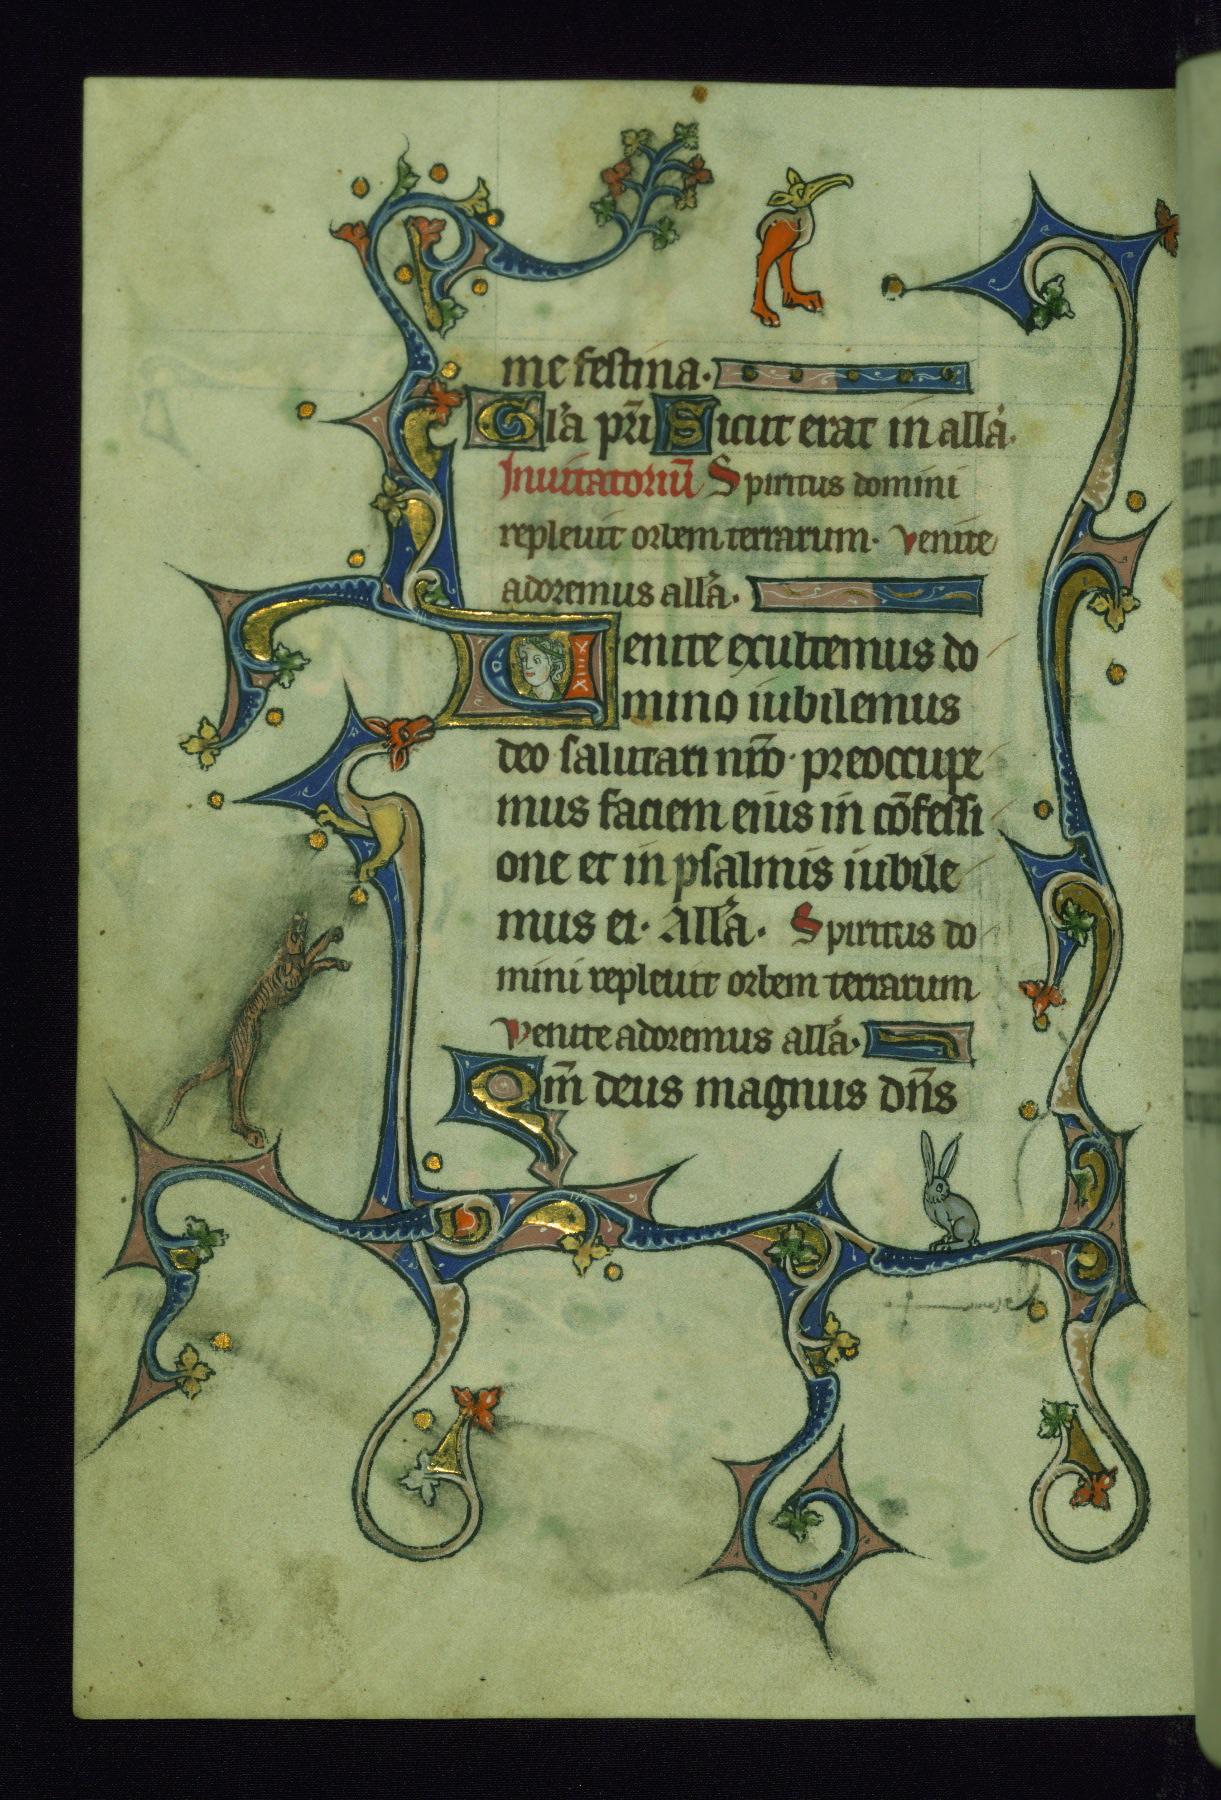 me festina.
Gl'a pr̄i Sicut erat in all'a.
Inuitatoriū Spiritus domini
repleuit orbem terrarum. venite
adoremus all'a.
Uenite exultemus do
mino iubilemus
deo salutari nr̄o. preoccupe
mus faciem eius in cōfessi
one et in psalmis iubile
mus ei. All'a. Spiritus do
mini repleuit orbem terrarum
venite adoremus all'a.
Qm̄ deus magnus dn̄s